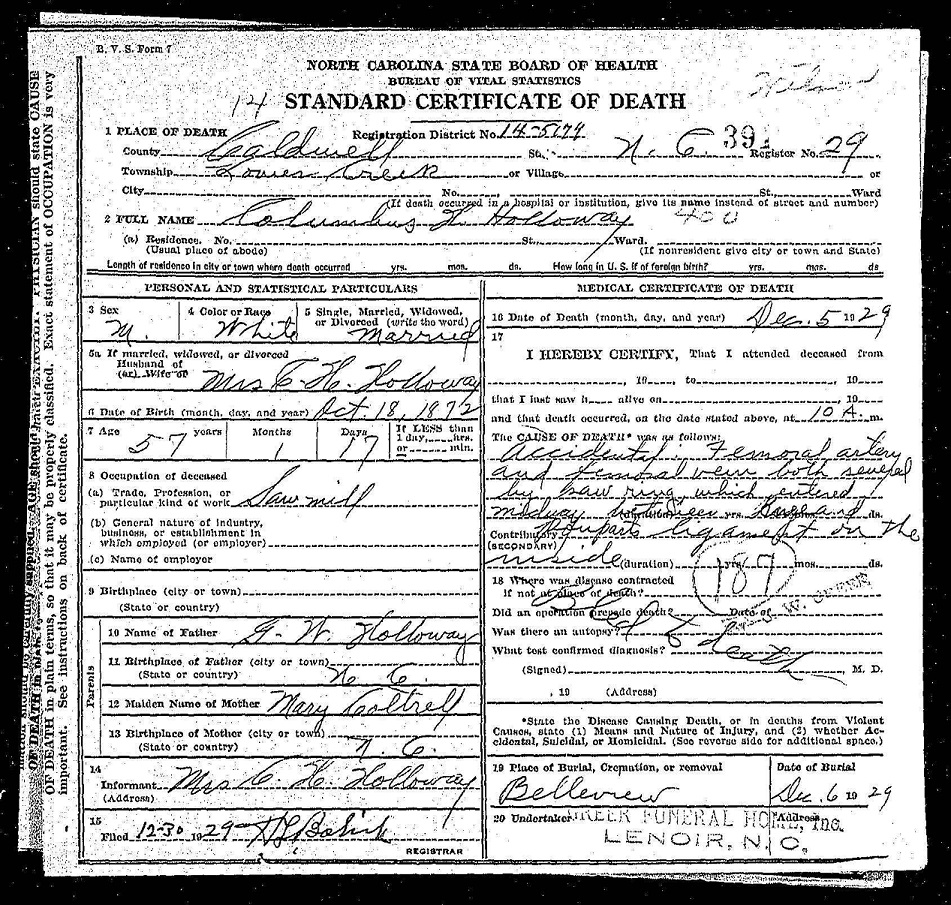 B. V. S. Form 7
NORTH CAROLINA STATE BOARD OF HEALTH
BUREAU OF VITAL STATISTICS
14 STANDARD CERTIFICATE OF DEATH
1 PLACE OF DEATH Registration District No. 14-5174
County Caldwell St. N. C. 391 Register No. 29
Township Lower Creek or Village or
City No. St. Ward
(If death occurred in a hospital or institution, give its name instead of street and number)
2 FULL NAME Columbus H Holloway 400
(a) Residence. No. St. Ward.
(Usual place of abode) (If nonresident give city or town and State)
Length of residence in city or town where death occurred yrs. mos. ds. How long in U. S. if of foreign birth? yrs. mos. ds
PERSONAL AND STATISTICAL PARTICULARS
3 Sex 4 Color or Race 5 Single, Married, Widowed,
or Divorced (write the word)
M. White Married
5a If married, widowed, or divorced
Husband of
(or) Wife of Mrs C. H. Holloway
6 Date of Birth (month, day, and year) Oct 18, 1872
7 Age years Months Days If LESS than
1 day, hrs.
or min.
57 1 17
8 Occupation of deceased
(a) Trade, Profession, or
particular kind of work Saw mill
(b) General nature of industry,
business, or establishment in
which employed (or employer)
(c) Name of employer
9 Birthplace (city or town)
(State or country)
Parents
10 Name of Father G. W. Holloway
11 Birthplace of Father (city or town)
(State or country) N. C.
12 Maiden Name of Mother Mary Coltrell
13 Birthplace of Mother (city or town)
(State or country) N. C.
14
Informant Mrs C. H. Holloway
(Address)
15
Filed 12-30 1929
REGISTRAR
MEDICAL CERTIFICATE OF DEATH
16 Date of Death (month, day, and year) Dec. 5 1929
17
I HEREBY CERTIFY, That I attended deceased from
, 19 , to , 19
that I last saw h alive on , 19
and that death occurred, on the date stated above, at 10 A. m.
The CAUSE OF DEATH* was as follows:
Accidental: Femoral artery
and femoral vein both severed
by saw ring which entered
midway between and
(duration) yrs. ds.
Contributory Poupart's ligament on the
(SECONDARY)
inside (duration) yrs. mos. ds.
187
18 Where was disease contracted
If not at place of death?
Did an operation precede death? Date of
Was there an autopsy?
What test confirmed diagnosis? death
(Signed) , M. D.
, 19 (Address)
*State the Disease Causing Death, or in deaths from Violent
Causes, state (1) Means and Nature of Injury, and (2) whether Ac-
cidental, Suicidal, or Homicidal. (See reverse side for additional space.)
19 Place of Burial, Cremation, or removal Date of Burial
Belleview Dec. 6 1929
20 Undertaker GREER FUNERAL HOME, Inc. Address
LENOIR, N. C.
OF DEATH in plain terms, so that it may be properly classified. Exact statement of OCCUPATION is very
important. See instructions on back of certificate.